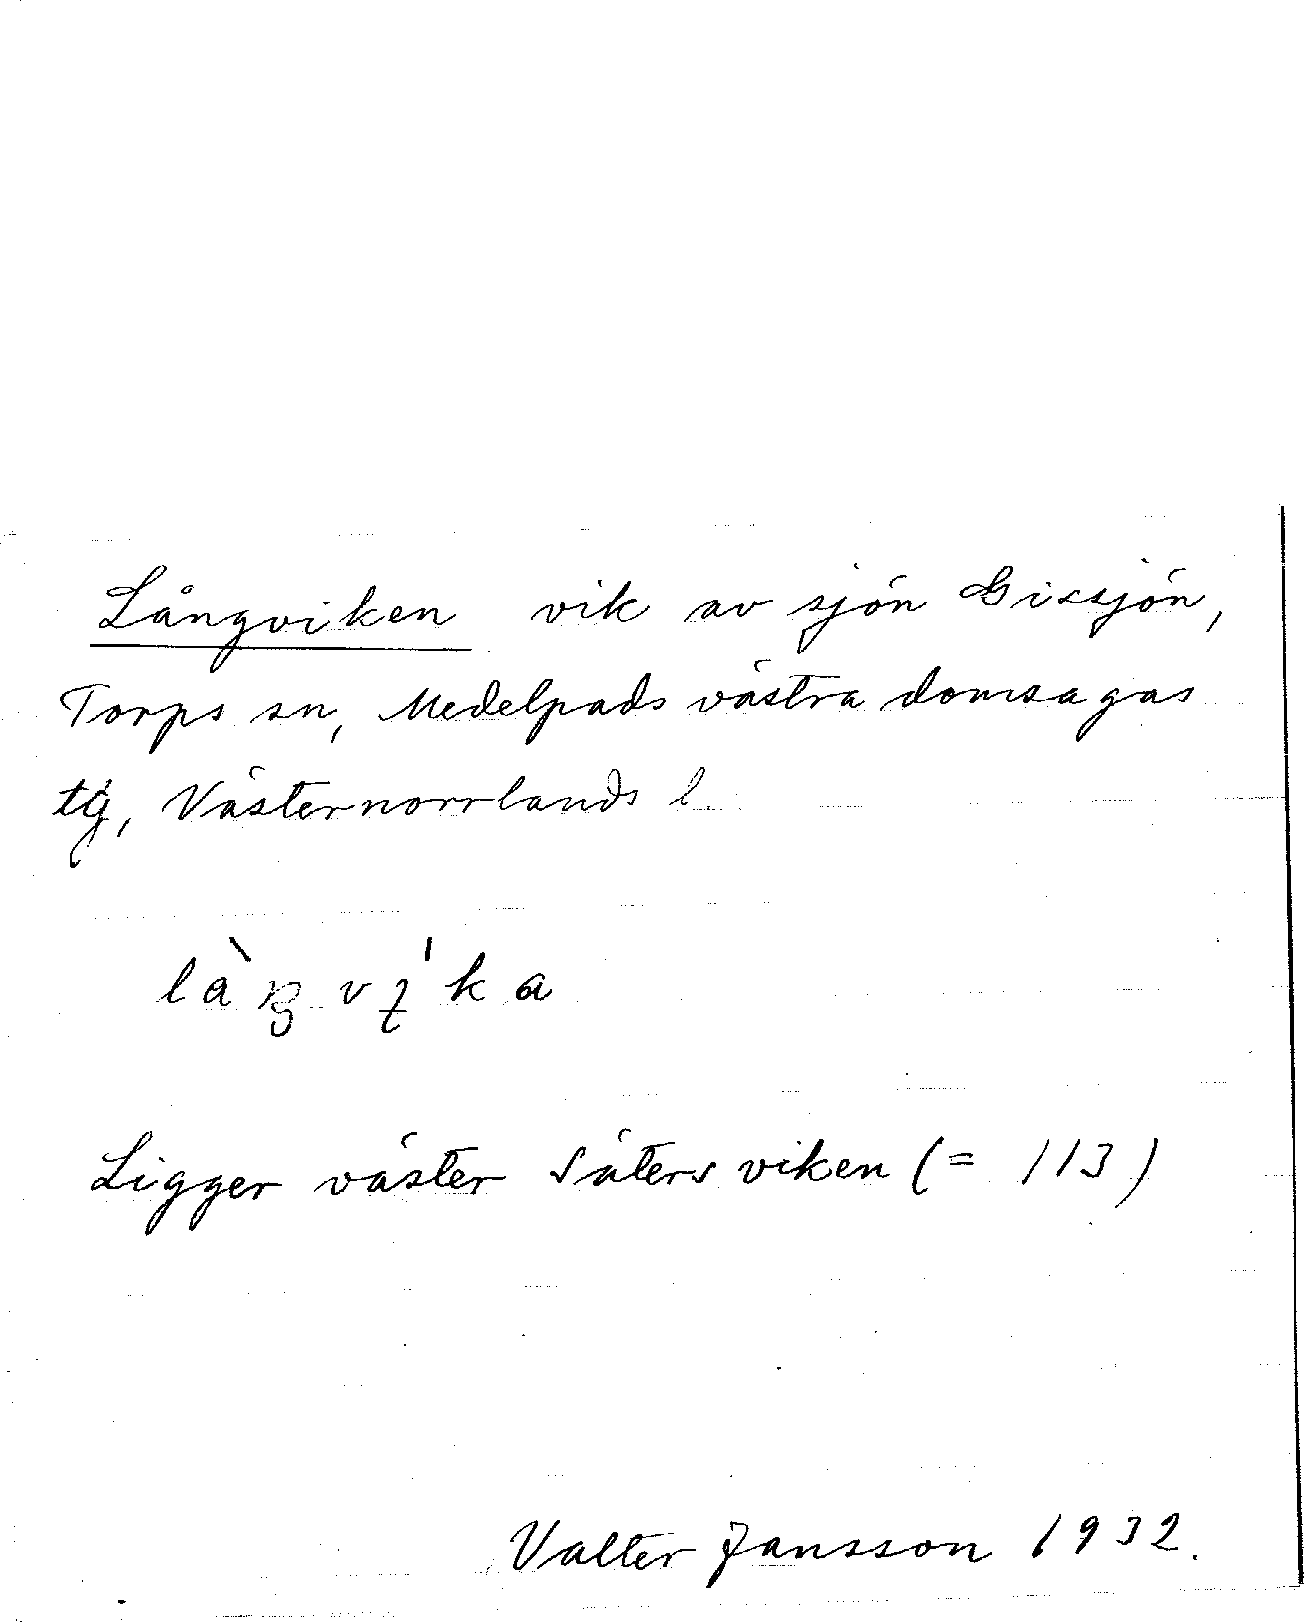 Långviken vik av sjön Gissjön,
Torps sn, Medelpads västra domsagas
tg, Västernorrlands l
Ligger väster Sätersviken (= 113)
Valter Jansson 1932.